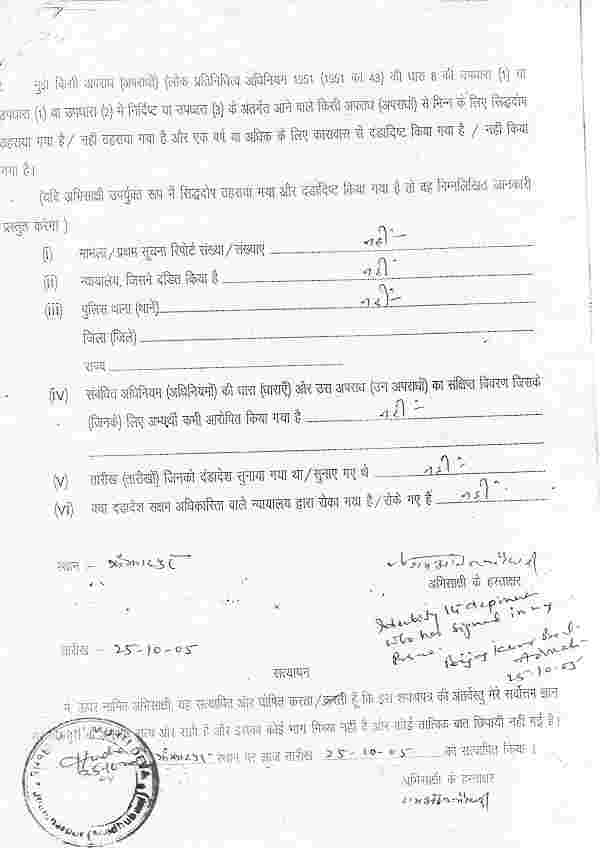 मुझे किसी अपराध (अपराधों) (लोक प्रतिनिधित्व अधिनियम 1951 (1951 का 43) की धारा 8 की उपधारा (1) या
उपधारा (1) या उपधारा (2) में निर्दिष्ट या उपधारा (3) के अंतर्गत आने वाले किसी अपराध (अपराधों) से भिन्न के लिए सिद्धदोष
ठहराया गया है/ नहीं ठहराया गया है और एक वर्ष या अधिक के लिए कारावास से दंडादिष्ट किया गया है / नहीं किया
गया है।
(यदि अभिसाक्षी उपर्युक्त रूप में सिद्धदोष ठहराया गया और दंडादिष्ट किया गया है तो वह निम्नलिखित जानकारी
प्रस्तुत करेगा )
(i) मामला/प्रथम सूचना रिपोर्ट संख्या/संख्याएं नहीं
(ii) न्यायालय, जिसने दंडित किया है नहीं
(iii) पुलिस थाना (थाने) नहीं
जिला (जिले)
राज्य
(iv) संबंधित अधिनियम (अधिनियमों) की धारा (धाराएँ) और उस अपराध (उन अपराधों) का संक्षिप्त विवरण जिसके
(जिनके) लिए अभ्यर्थी कभी आरोपित किया गया है नहीं
(v) तारीख (तारीखों) जिनको दंडादेश सुनाया गया था/सुनाए गए थे नहीं
(vi) क्या दंडादेश सक्षम अधिकारिता वाले न्यायालय द्वारा रोका गया है/रोके गए हैं नहीं
स्थान -
अभिसाक्षी के हस्ताक्षर
Identify the deponent
who has signed in my
तारीख - 25-10-05
25-10-05
सत्यापन
मैं ऊपर नामित अभिसाक्षी, यह सत्यापित और घोषित करता/करती हूँ कि इस शपथपत्र की अंतर्वस्तु मेरे सर्वोत्तम ज्ञान
सत्य और सही है और इसका कोई भाग मिथ्या नहीं है और कोई तात्विक बात छिपायी नहीं गई है।
स्थान पर आज तारीख 25-10-05 को सत्यापित किया।
अभिसाक्षी के हस्ताक्षर